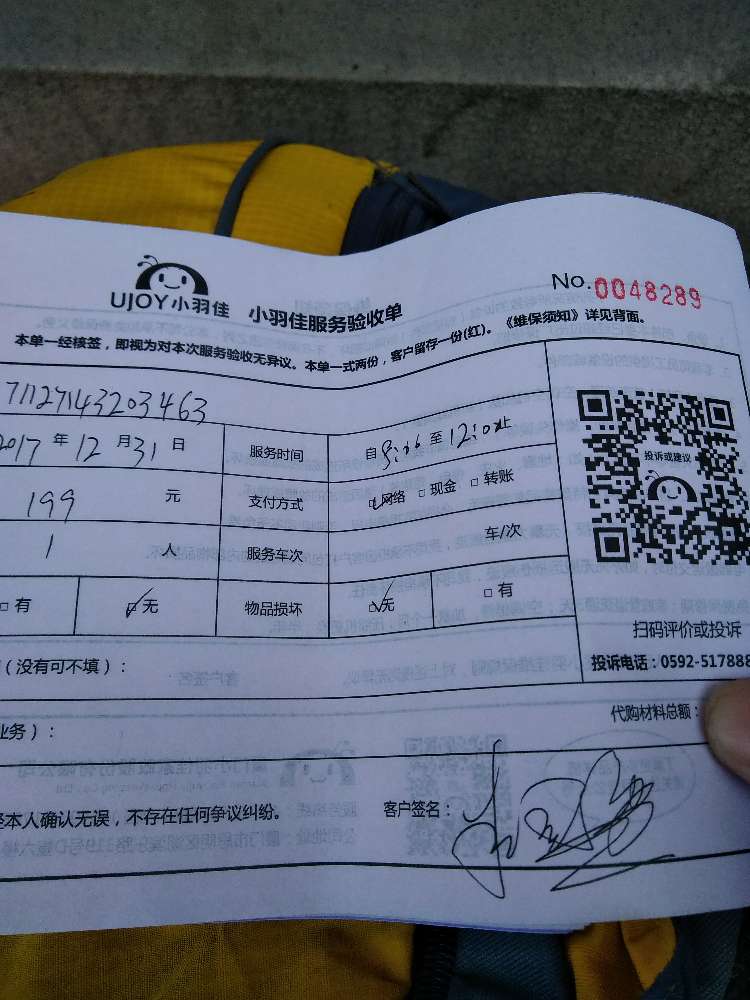 UJOY小羽佳 小羽佳服务验收单 No.0048289
本单一经核签，即视为对本次服务验收无异议。本单一式两份，客户留存一份(红)。《维保须知》详见背面。
71127143203463
2017 年 12 月 31 日 服务时间 自 至 12:02止
199 元 支付方式 网络 现金 转账
1 人 服务车次 车/次
有 无 物品损坏 无 有
投诉或建议
扫码评价或投诉
投诉电话：0592-517888
（没有可不填）：
业务）： 代购材料总额：
本人确认无误，不存在任何争议纠纷。 客户签名：